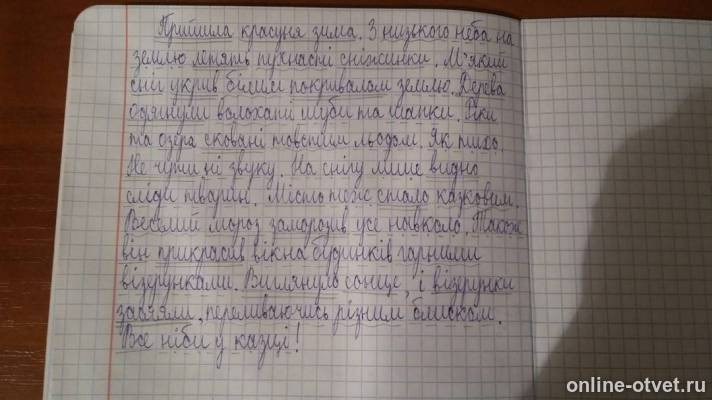 Прийшла красуня зима. З низького неба на
землю летять пухнасті сніжинки. М'який
сніг укрив білим покривалом землю. Дерева
одягнули волохаті шуби та шапки. Ріки
та озера сковані товстим льодом. Як тихо.
Не чути ні звуку. На снігу лише видно
сліди тварин. Місто теж стало казковим.
Веселий мороз заморозив усе навколо. Також
він прикрасив вікна будинків гарними
візерунками. Виглянуло сонце, і візерунки
засяяли, переливаючись різним блиском.
Все ніби у казці!
online-otvet.ru